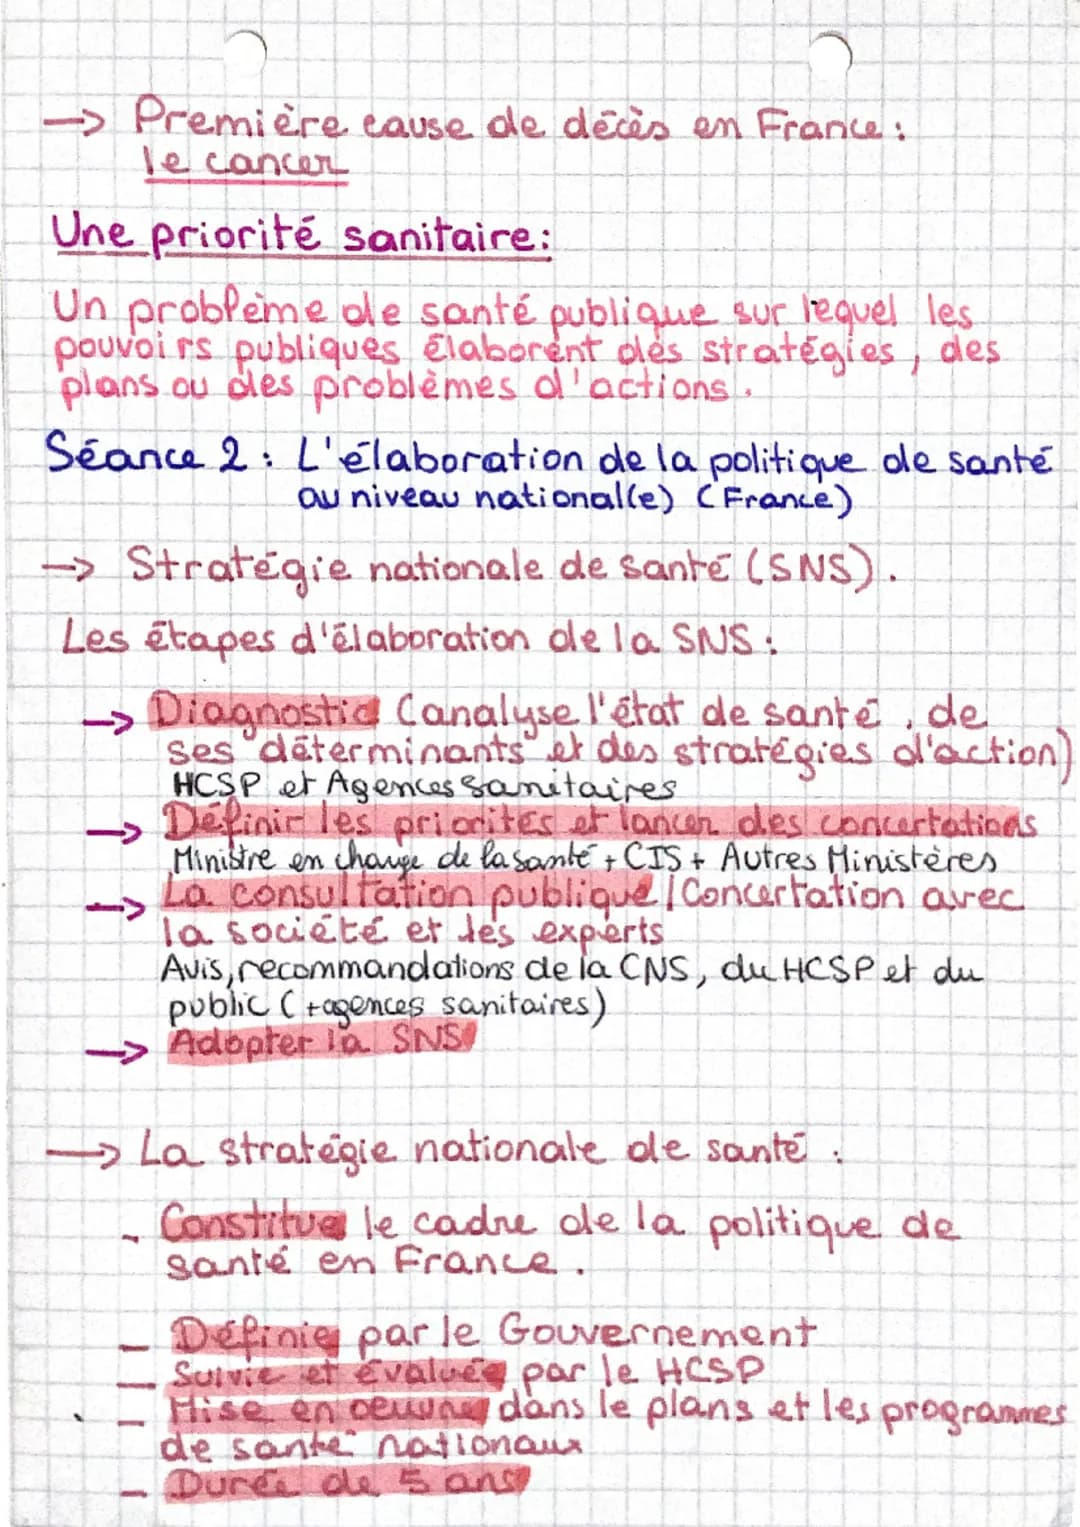 → Première cause de décès en France :
le cancer
Une priorité sanitaire :
Un problème de santé publique sur lequel les
pouvoirs publiques élaborent des stratégies, des
plans ou des problèmes d'actions.
Séance 2 : L'élaboration de la politique de santé
au niveau national(e) (France)
→ Stratégie nationale de santé (SNS).
Les étapes d'élaboration de la SNS :
→ Diagnostic (analyse l'état de santé, de
ses déterminants et des stratégies d'action)
HCSP et Agences Sanitaires
→ Définir les priorités et lancer des concertations
Ministre en charge de la santé + CIS + Autres Ministères
→ La consultation publique / Concertation avec
la société et les experts
Avis, recommandations de la CNS, du HCSP et du
public (+agences sanitaires)
→ Adopter la SNS
→ La stratégie nationale de santé :
- Constitue le cadre de la politique de
santé en France.
- Définie par le Gouvernement
- Suivie et évaluée par le HCSP
- Mise en oeuvre dans le plans et les programmes
de santé nationaux
- Durée de 5 ans